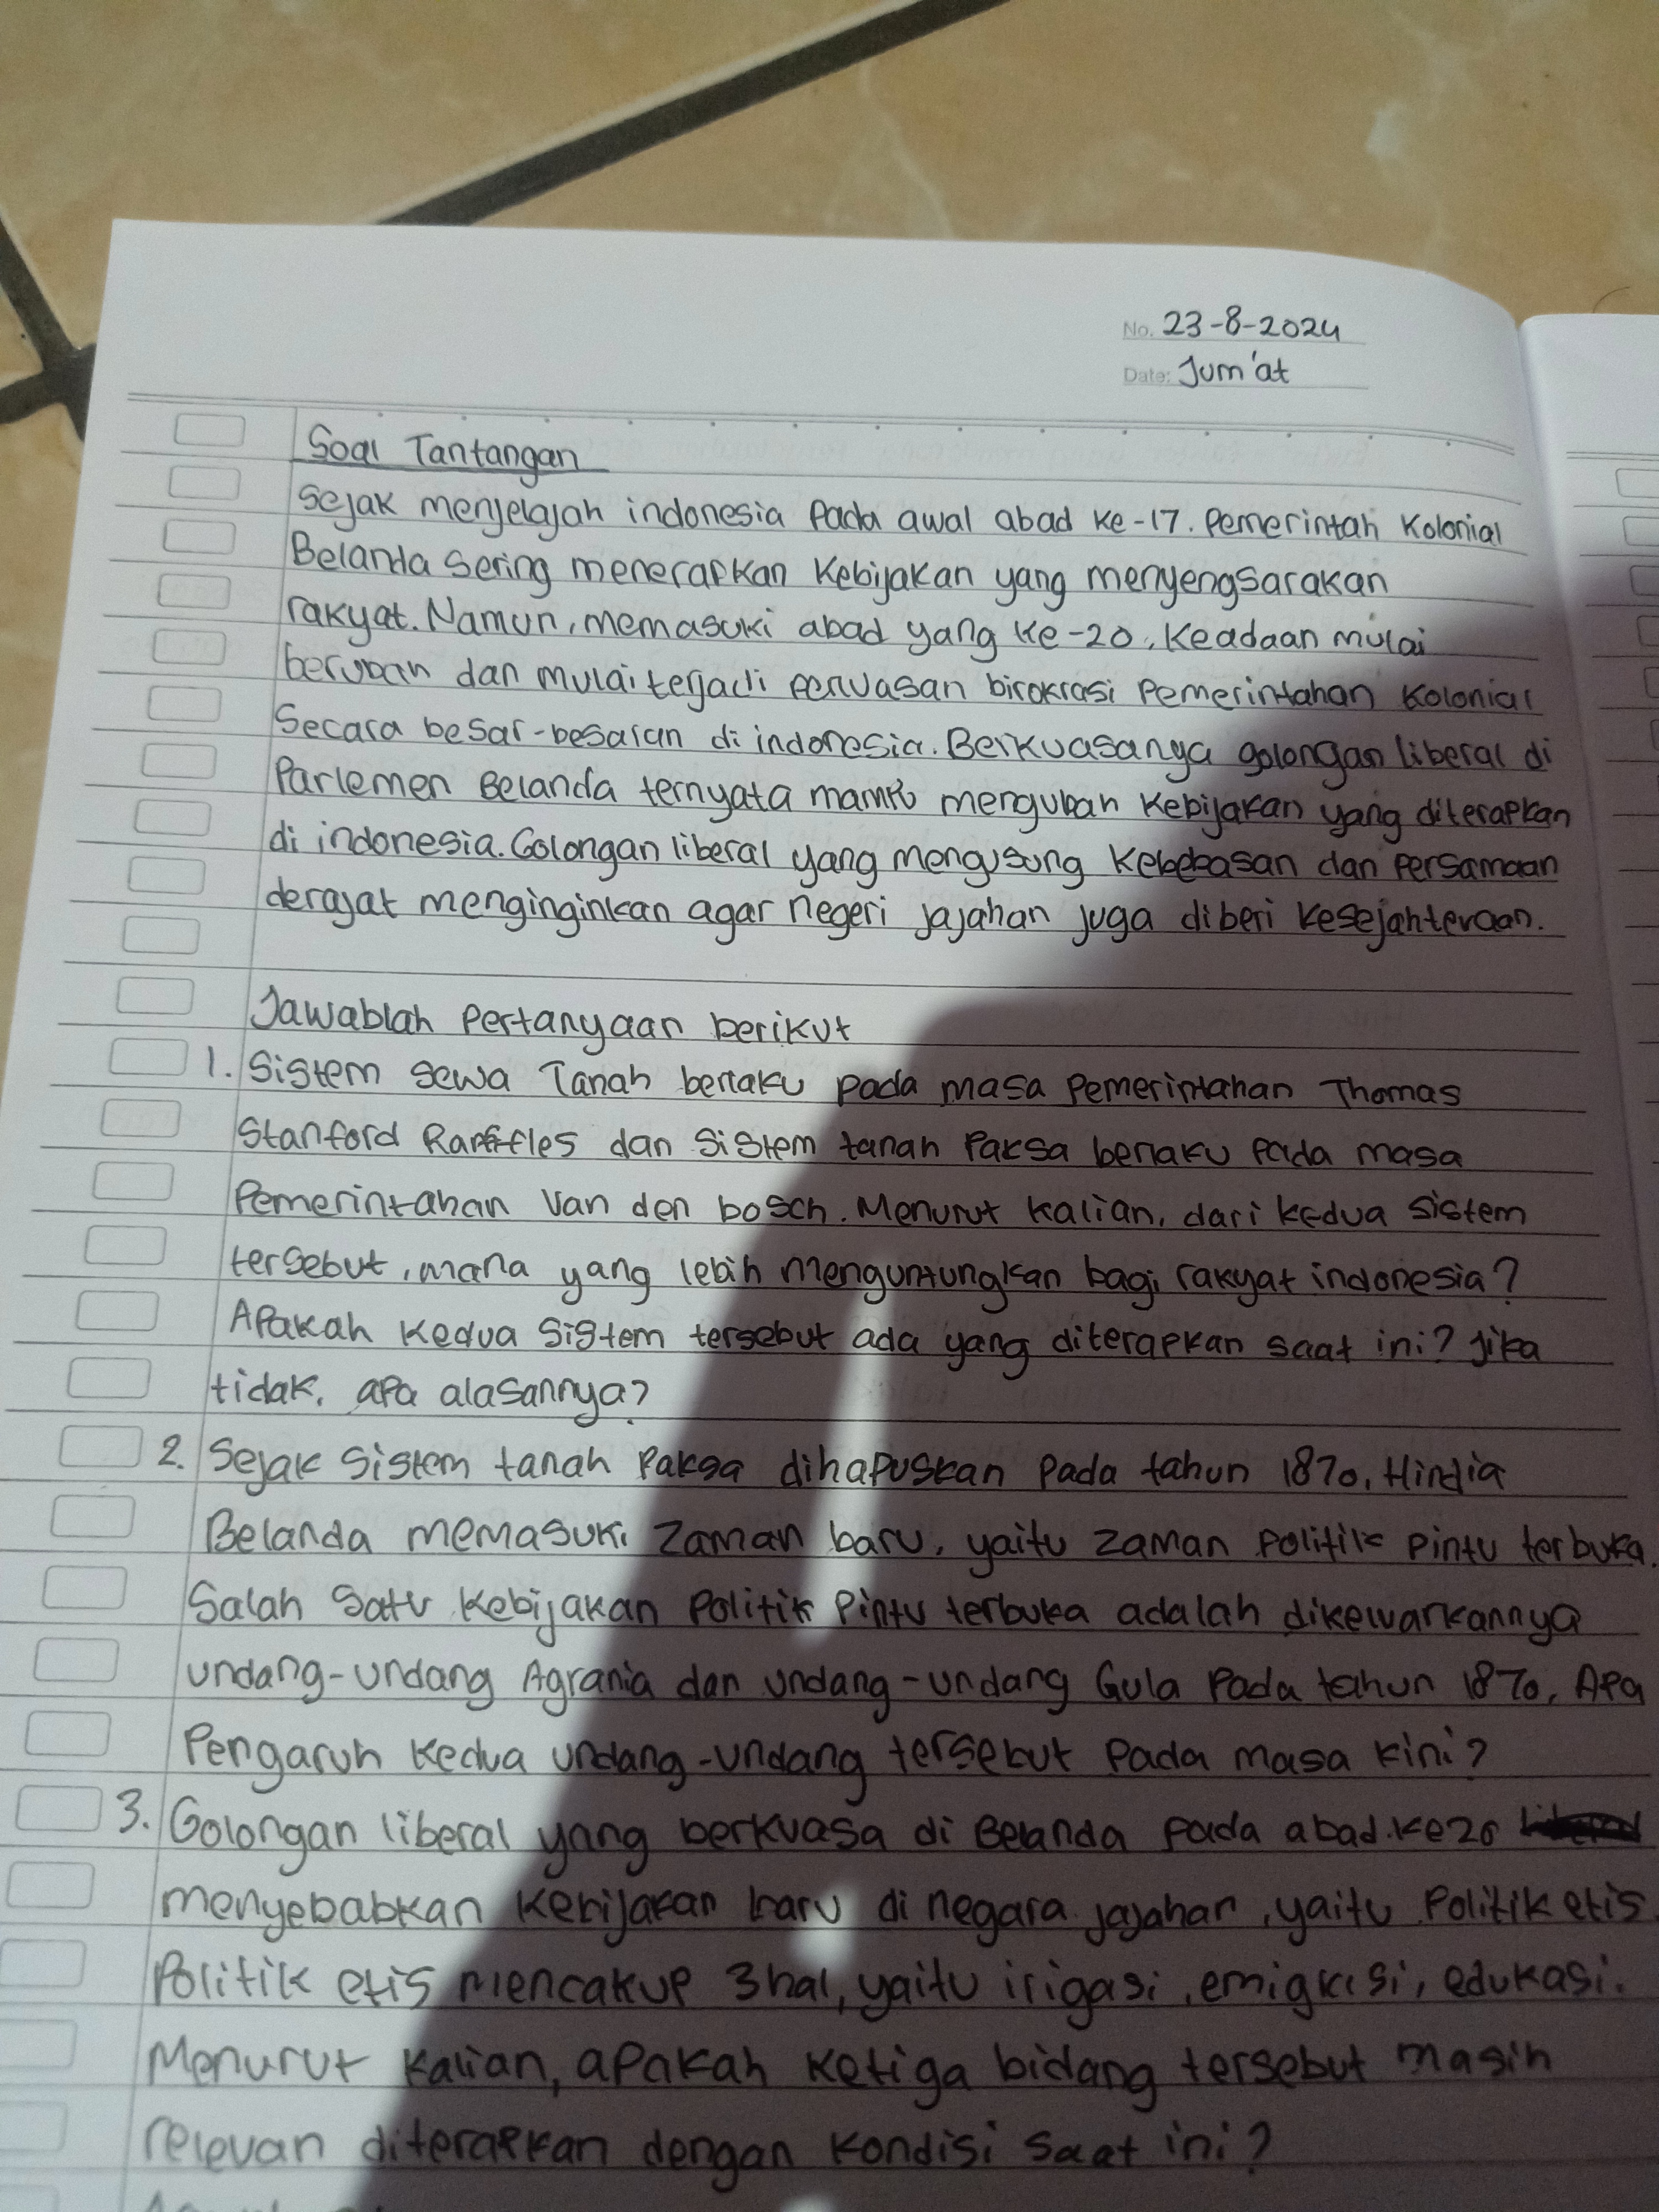 No. 23-8-2024
Date: Jum'at
Soal Tantangan
Sejak menjelajah indonesia pada awal abad ke-17. Pemerintah Kolonial
Belanda sering menerapkan Kebijakan yang menyengsarakan
rakyat. Namun, memasuki abad yang ke-20, Keadaan mulai
berubah dan mulai terjadi perluasan birokrasi Pemerintahan Kolonial
Secara besar-besaran di indonesia. Berkuasanya golongan liberal di
Parlemen Belanda ternyata mampu mengubah Kebijakan yang diterapkan
di indonesia. Golongan liberal yang mengusung Kebebasan dan Persamaan
derajat menginginkan agar negeri jajahan juga diberi kesejahteraan.
Jawablah Pertanyaan berikut
1. Sistem sewa Tanah berlaku pada masa Pemerintahan Thomas
Stanford Raffles dan Sistem tanah Paksa berlaku pada masa
Pemerintahan Van den bosch. Menurut Kalian, dari kedua sistem
tersebut, mana yang lebih menguntungkan bagi rakyat indonesia?
Apakah Kedua Sistem tersebut ada yang diterapkan saat ini? Jika
tidak, apa alasannya?
2. Sejak Sistem tanah Paksa dihapuskan Pada tahun 1870, Hindia
Belanda memasuki Zaman baru, yaitu zaman Politik Pintu terbuka.
Salah Satu Kebijakan Politik Pintu terbuka adalah dikewarkannya
undang-undang Agraria dan undang-undang Gula Pada tahun 1870, Apa
Pengaruh Kedua undang-undang tersebut Pada masa kini?
3. Golongan liberal yang berkuasa di Belanda Pada abad.ke20
menyebabkan Kebijakan baru di negara jajahan, yaitu Politik etis.
Politik etis mencakup 3 hal, yaitu irigasi, emigrasi, edukasi.
Menurut Kalian, apakah Ketiga bidang tersebut masih
relevan diterapkan dengan Kondisi Saat ini?